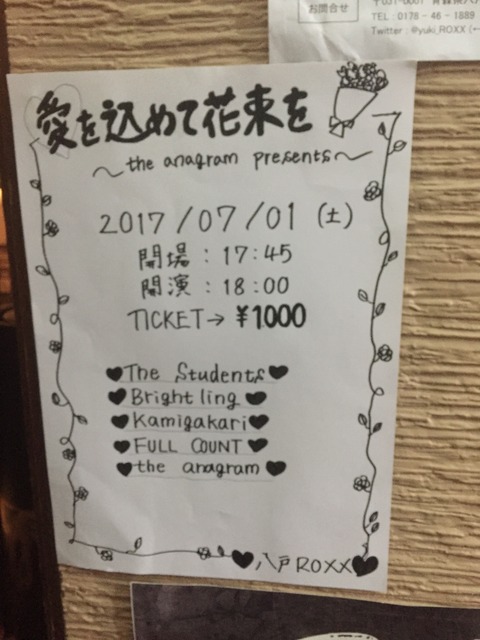 お問合せ
TEL : 0178 - 46 - 1889
Twitter : @yuki_ROXX
愛を込めて花束を
〜the anagram presents〜
2017/07/01 (土)
開場 : 17:45
開演 : 18:00
TICKET→ ¥1000
♥The Students♥
♥Brightling♥
♥Kamigakari♥
♥FULL COUNT♥
♥the anagram♥
♥八戸ROXX♥